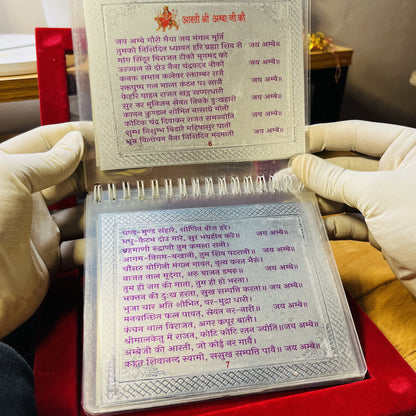 आरती श्री अम्बा जी की
जय अम्बे गौरी मैया जय मंगल मूर्ति
तुमको निशिदिन ध्यावत हरि ब्रह्मा शिव री जय अम्बे॥
मांग सिंदूर विराजत टीको मृगमद को
उज्ज्वल से दोउ नैना चंद्रवदन नीको जय अम्बे॥
कनक समान कलेवर रक्ताम्बर राजै
रक्तपुष्प गल माला कंठन पर साजै जय अम्बे॥
केहरि वाहन राजत खड्ग खप्परधारी
सुर नर मुनिजन सेवत तिनके दुःखहारी जय अम्बे॥
कानन कुण्डल शोभित नासाग्रे मोती
कोटिक चंद्र दिवाकर राजत समज्योति जय अम्बे॥
शुम्भ निशुम्भ विडारे महिषासुर घाती
धूम्र विलोचन नैना निशिदिन मदमाती जय अम्बे॥
6
चण्ड-मुण्ड संहारे, शोणित बीज हरे।
मधु-कैटभ दोउ मारे, सुर भयहीन करे॥ जय अम्बे॥
ब्रहमाणी रुद्राणी तुम कमला रानी।
आगम-निगम-बखानी, तुम शिव पटरानी॥ जय अम्बे॥
चौंसठ योगिनी मंगल गावत, नृत्य करत भैरुं।
बाजत ताल मृदंगा, अरु बाजत डमरु॥ जय अम्बे॥
तुम ही जग की माता, तुम ही हो भरता।
भक्तन की दुःख हरता, सुख सम्पति करता॥ जय अम्बे॥
भुजा चार अति शोभित, वर-मुद्रा धारी।
मनवान्छित फल पावत, सेवत नर-नारी॥ जय अम्बे॥
कंचन थाल विराजत, अगर कपूर बाती।
श्रीमालकेतु में राजत, कोटि कोटि रतन ज्योति॥जय अम्बे॥
अम्बेजी की आरती, जो कोई नर गावें।
कहत शिवानन्द स्वामी, ससुख सम्पति पावै॥ जय अम्बे॥
7